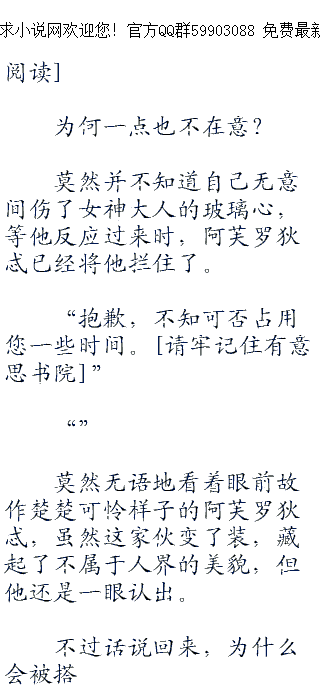 求小说网欢迎您！官方QQ群59903088 免费最新
阅读]
为何一点也不在意？
莫然并不知道自己无意
间伤了女神大人的玻璃心，
等他反应过来时，阿芙罗狄
忒已经将他拦住了。
“抱歉，不知可否占用
您一些时间。[请牢记住有意
思书院]”
“”
莫然无语地看着眼前故
作楚楚可怜样子的阿芙罗狄
忒，虽然这家伙变了装，藏
起了不属于人界的美貌，但
他还是一眼认出。
不过话说回来，为什么
会被搭